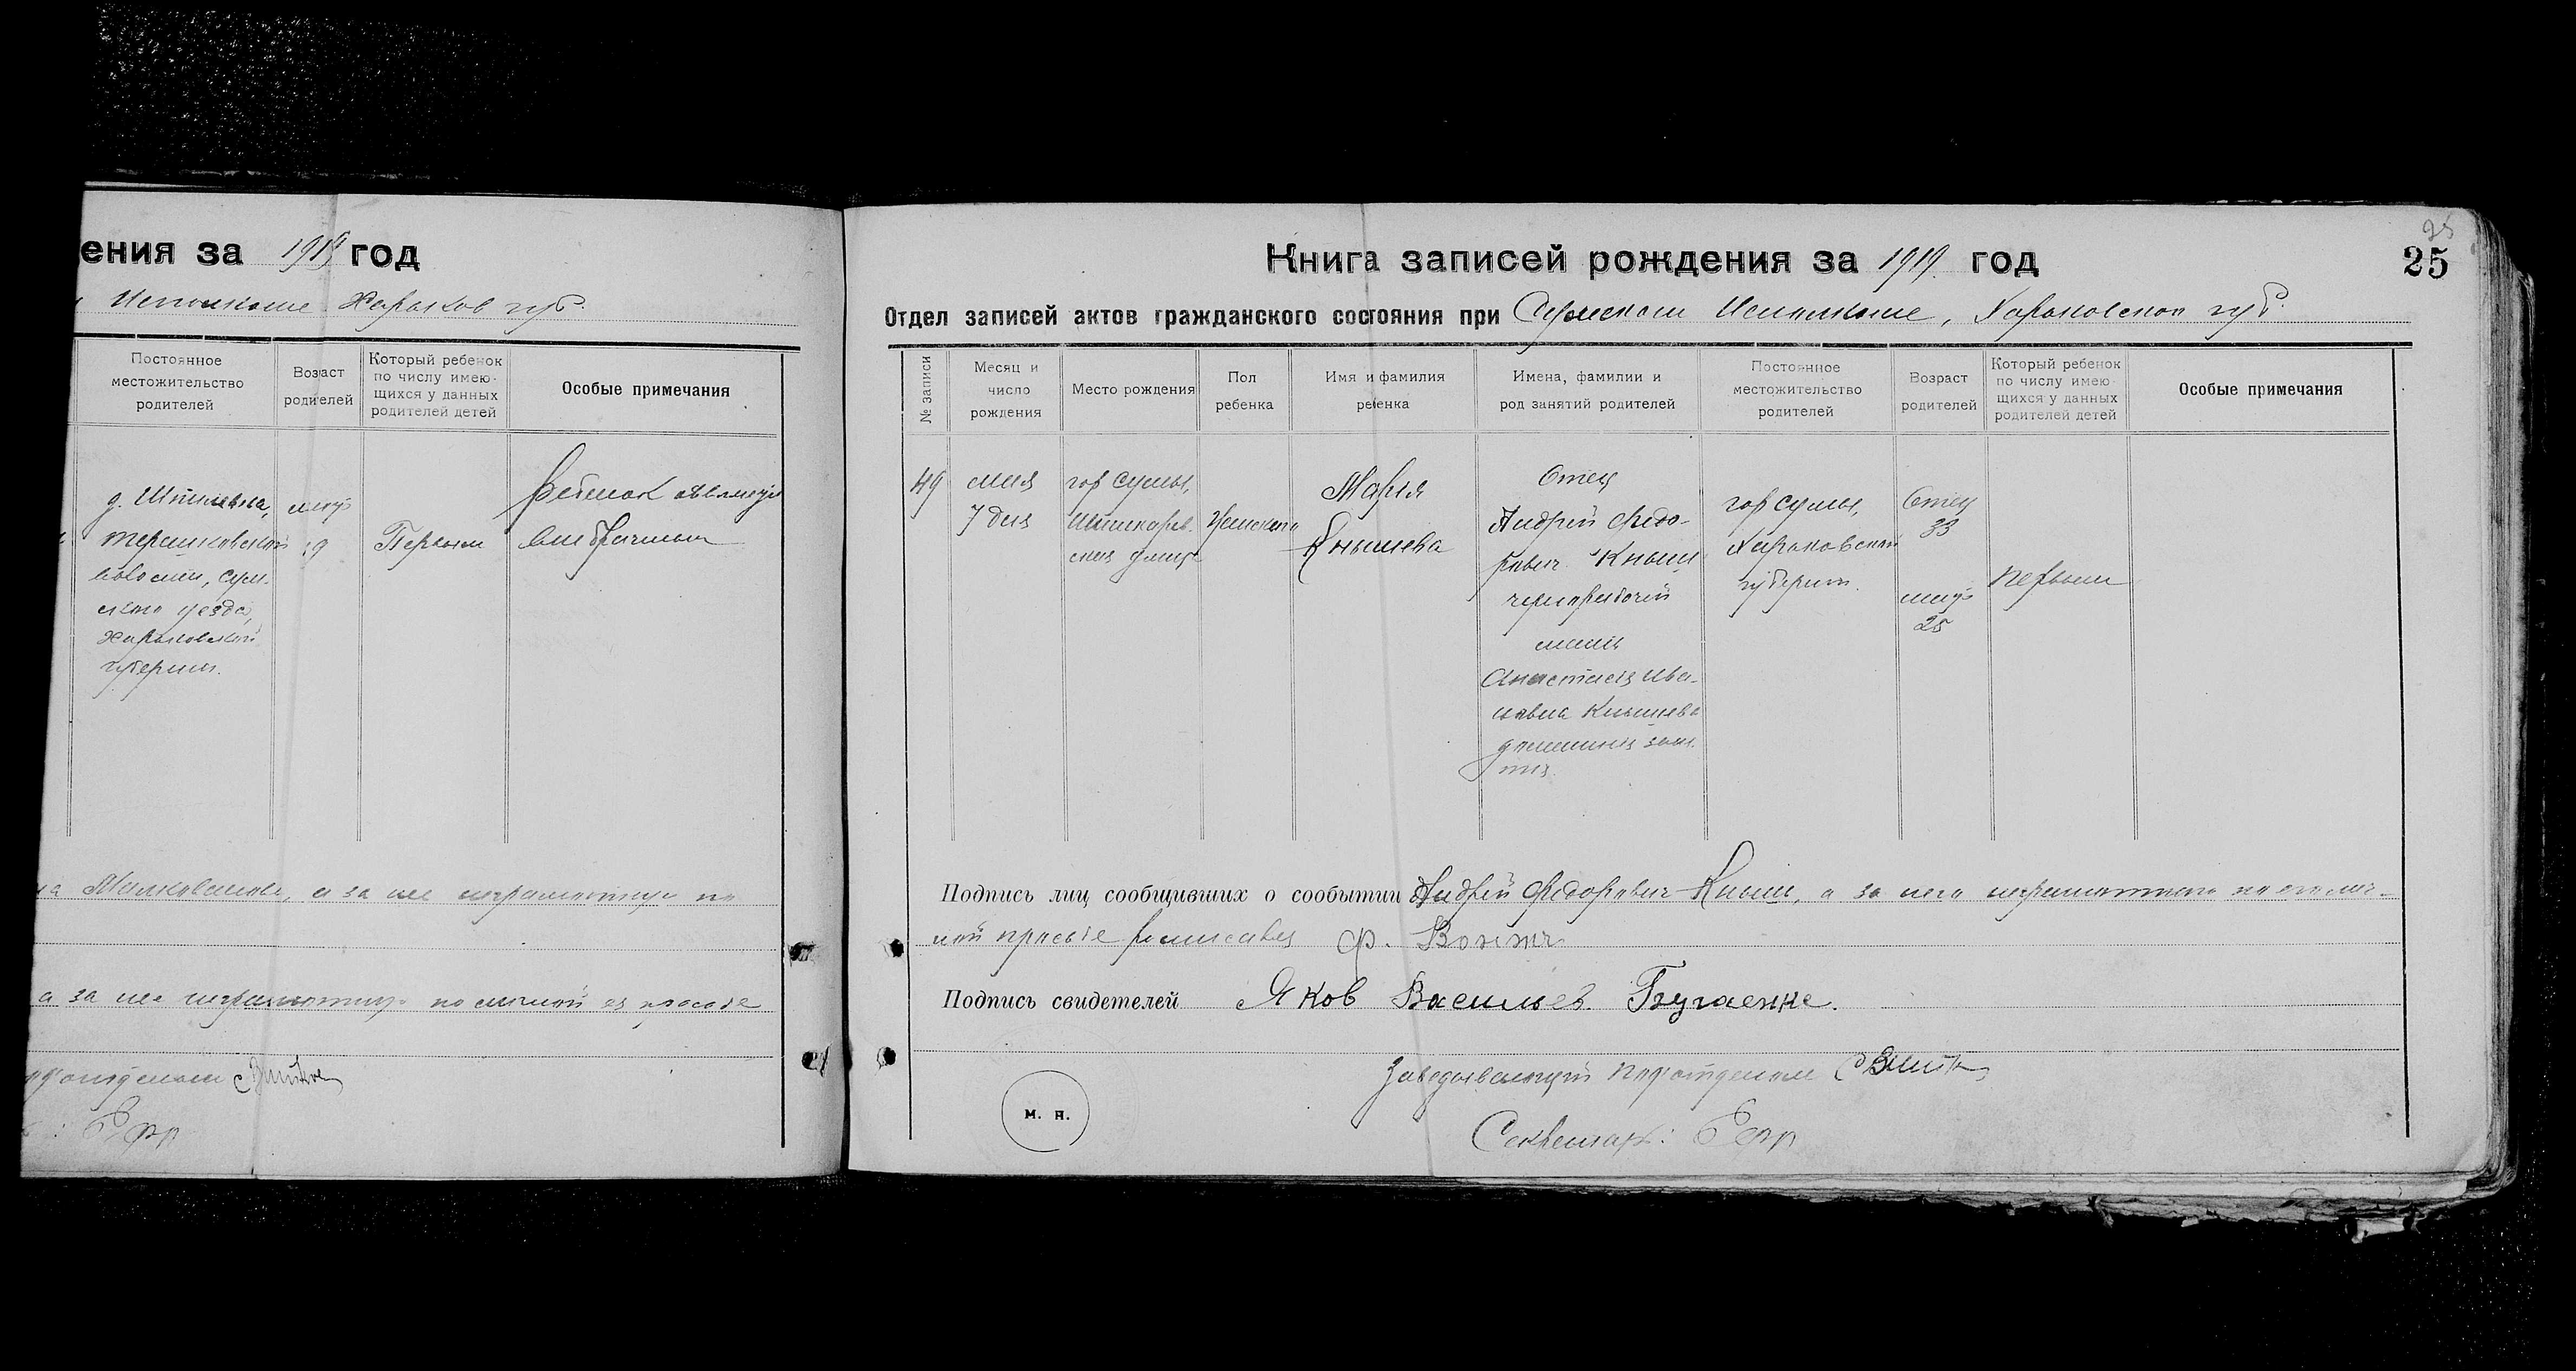 ения за 1919 год
Исполкоме Харьков губ.
Постоянное
местожительство
родителей
Возраст
родителей
Который ребенок
по числу имею-
щихся у данных
родителей детей
Особые примечания
д.
волости, сум-
ского уезда,
Харьковской
губернии.
19
Первый
Ребенок
внебрачным
а за нее неграмотную по
а за нее неграмотную по личной ея просьбе
25
Книга записей рождения за 1919 год
25
Отдел записей актов гражданского состояния при Сумском Исполкоме, Харьковской губ.
№ записи
Месяц и
число
рождения
Место рождения
Пол
ребенка
Имя и фамилия
ребенка
Имена, фамилии и
род занятий родителей
Постоянное
местожительство
родителей
Возраст
родителей
Который ребенок
по числу имею-
щихся у данных
родителей детей
Особые примечания
49
мая
7 дня
гор Сумы,
улица
Женского
Мария
Кнышева
Отец
Андрей Федо-
рович Кныш
чернорабочий
мать
Анастасия Ива-
новна Кнышева
домашния заня-
тия.
гор Сумы,
Харьковской
губернии.
Отец
33
мать
25
первый
Подпись лиц сообщивших о сообытии Андрей Федорович Кныш, а за него неграмотного по его лич-
ной просьбе росписался Ф.
Подпись свидетелей Яков Васильев. Бугаенко.
Заведывающий Подотделом
Секретарь:
М. П.